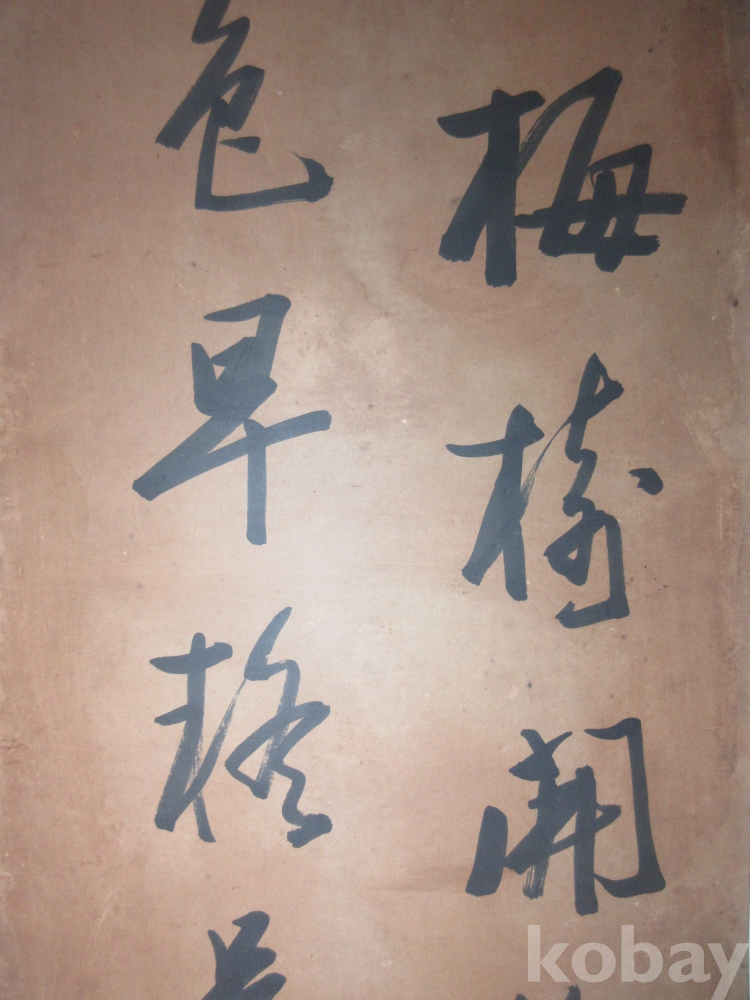 梅樹開
色早格
kobay